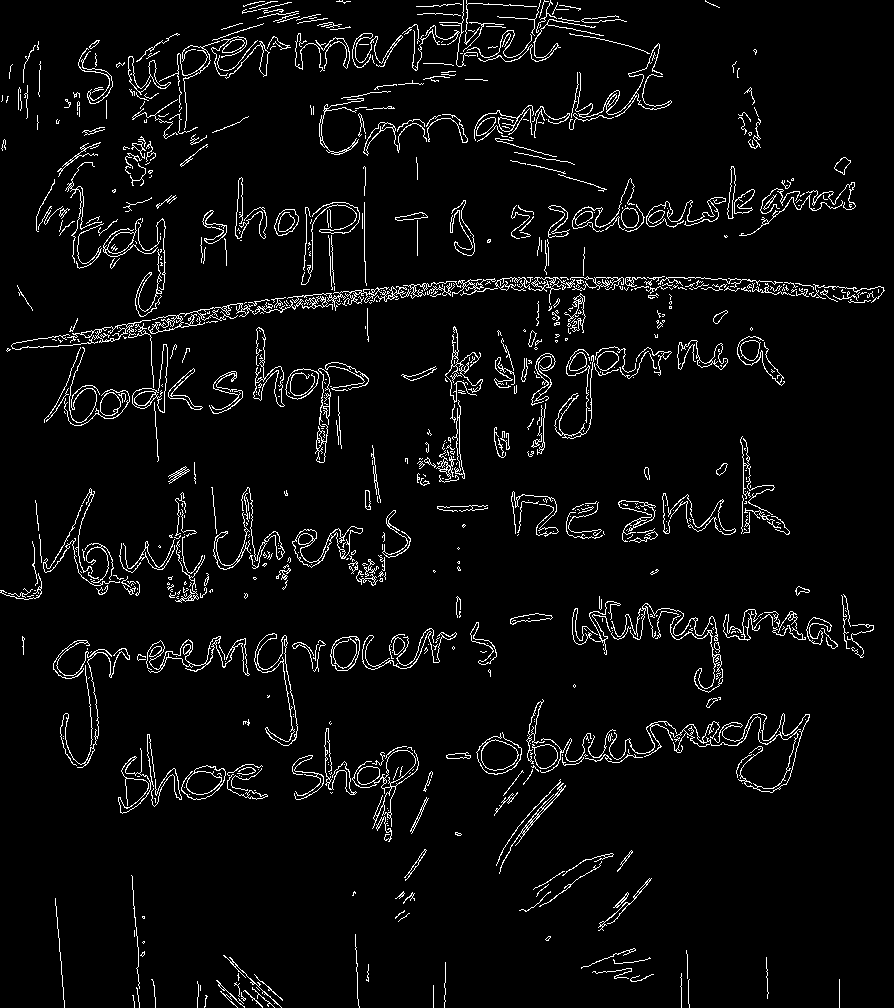 supermarket
omarket
toy shop - s. z zabawkami
bookshop - księgarnia
butcher's - rzeźnik
greengrocer's - warzywniak
shoe shop - obuwniczy